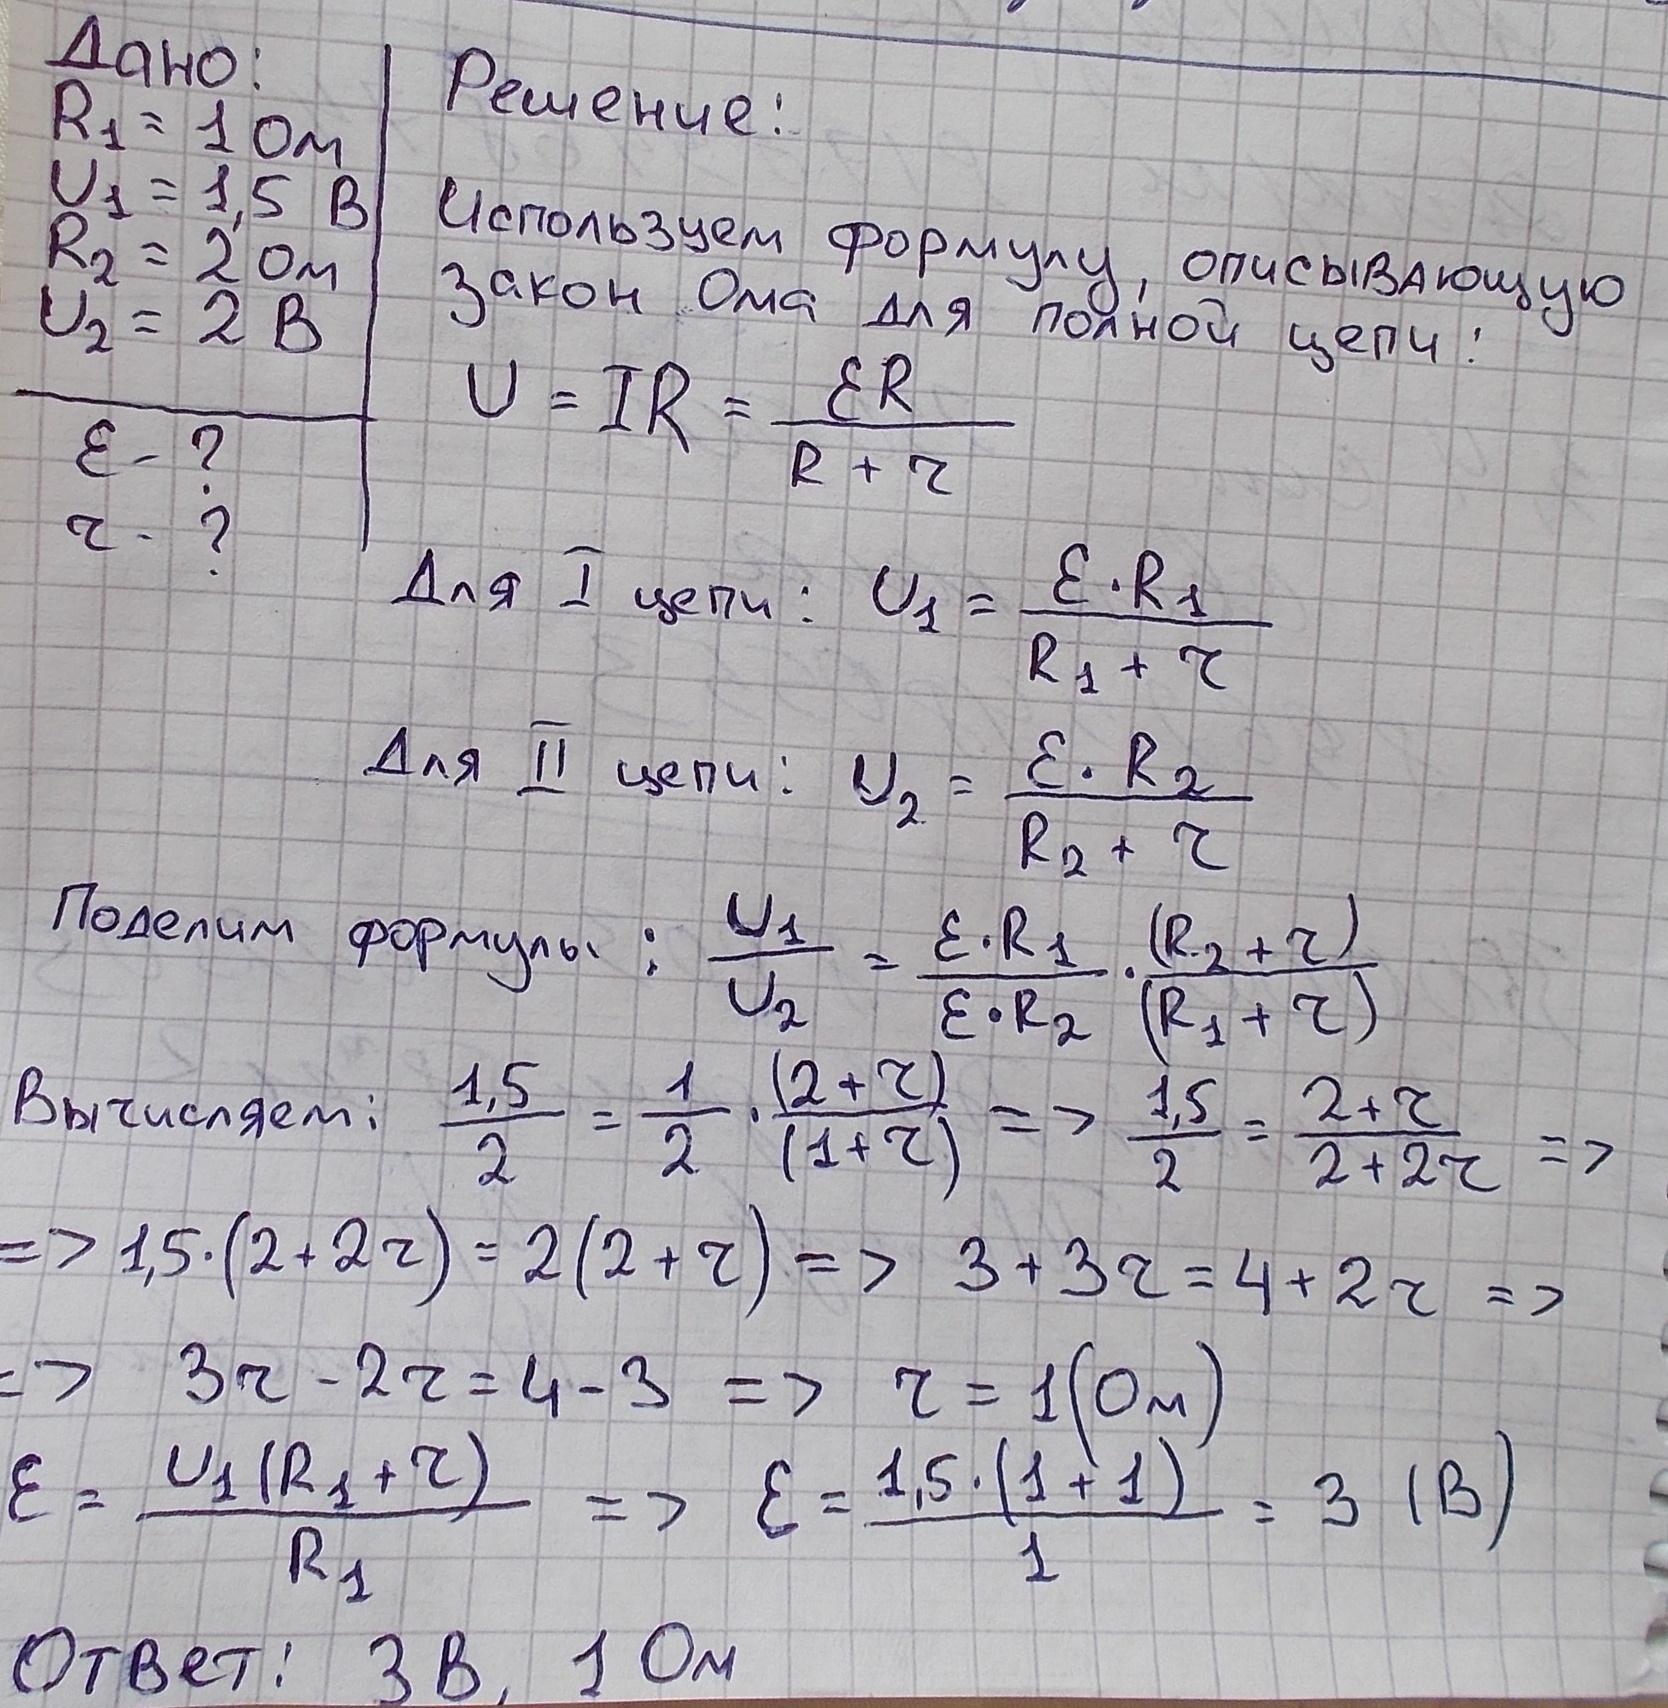 Дано:
R₁ = 1 Ом
U₁ = 1,5 В
R₂ = 2 Ом
U₂ = 2 В
ε - ?
r - ?
Решение:
Используем формулу, описывающую
закон Ома для полной цепи:
U = IR = εR / (R + r)
Для I цепи: U₁ = ε·R₁ / (R₁ + r)
Для II цепи: U₂ = ε·R₂ / (R₂ + r)
Поделим формулы: U₁/U₂ = (ε·R₁)/(ε·R₂) · (R₂ + r)/(R₁ + r)
Вычисляем: 1,5/2 = 1/2 · (2 + r)/(1 + r) => 1,5/2 = (2 + r)/(2 + 2r) =>
=> 1,5·(2 + 2r) = 2(2 + r) => 3 + 3r = 4 + 2r =>
=> 3r - 2r = 4 - 3 => r = 1 (Ом)
ε = U₁(R₁ + r)/R₁ => ε = 1,5·(1 + 1)/1 = 3 (В)
Ответ: 3 В, 1 Ом